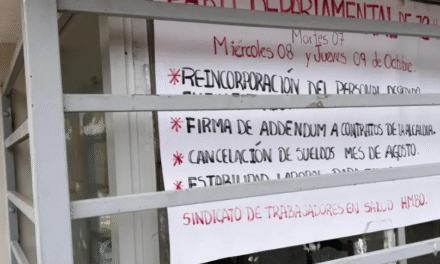 DEPARTAMENTAL DE 72
Martes 07
Miércoles 08 y Jueves 09 de Octubre.
*REINCORPORACIÓN DEL PERSONAL
*FIRMA DE ADDENDUM A CONTRATOS DE LA ALCALDIA.
*CANCELACIÓN DE SUELDOS MES DE AGOSTO.
*ESTABILIDAD LABORAL PARA
SINDICATO DE TRABAJADORES EN SALUD HMBO.